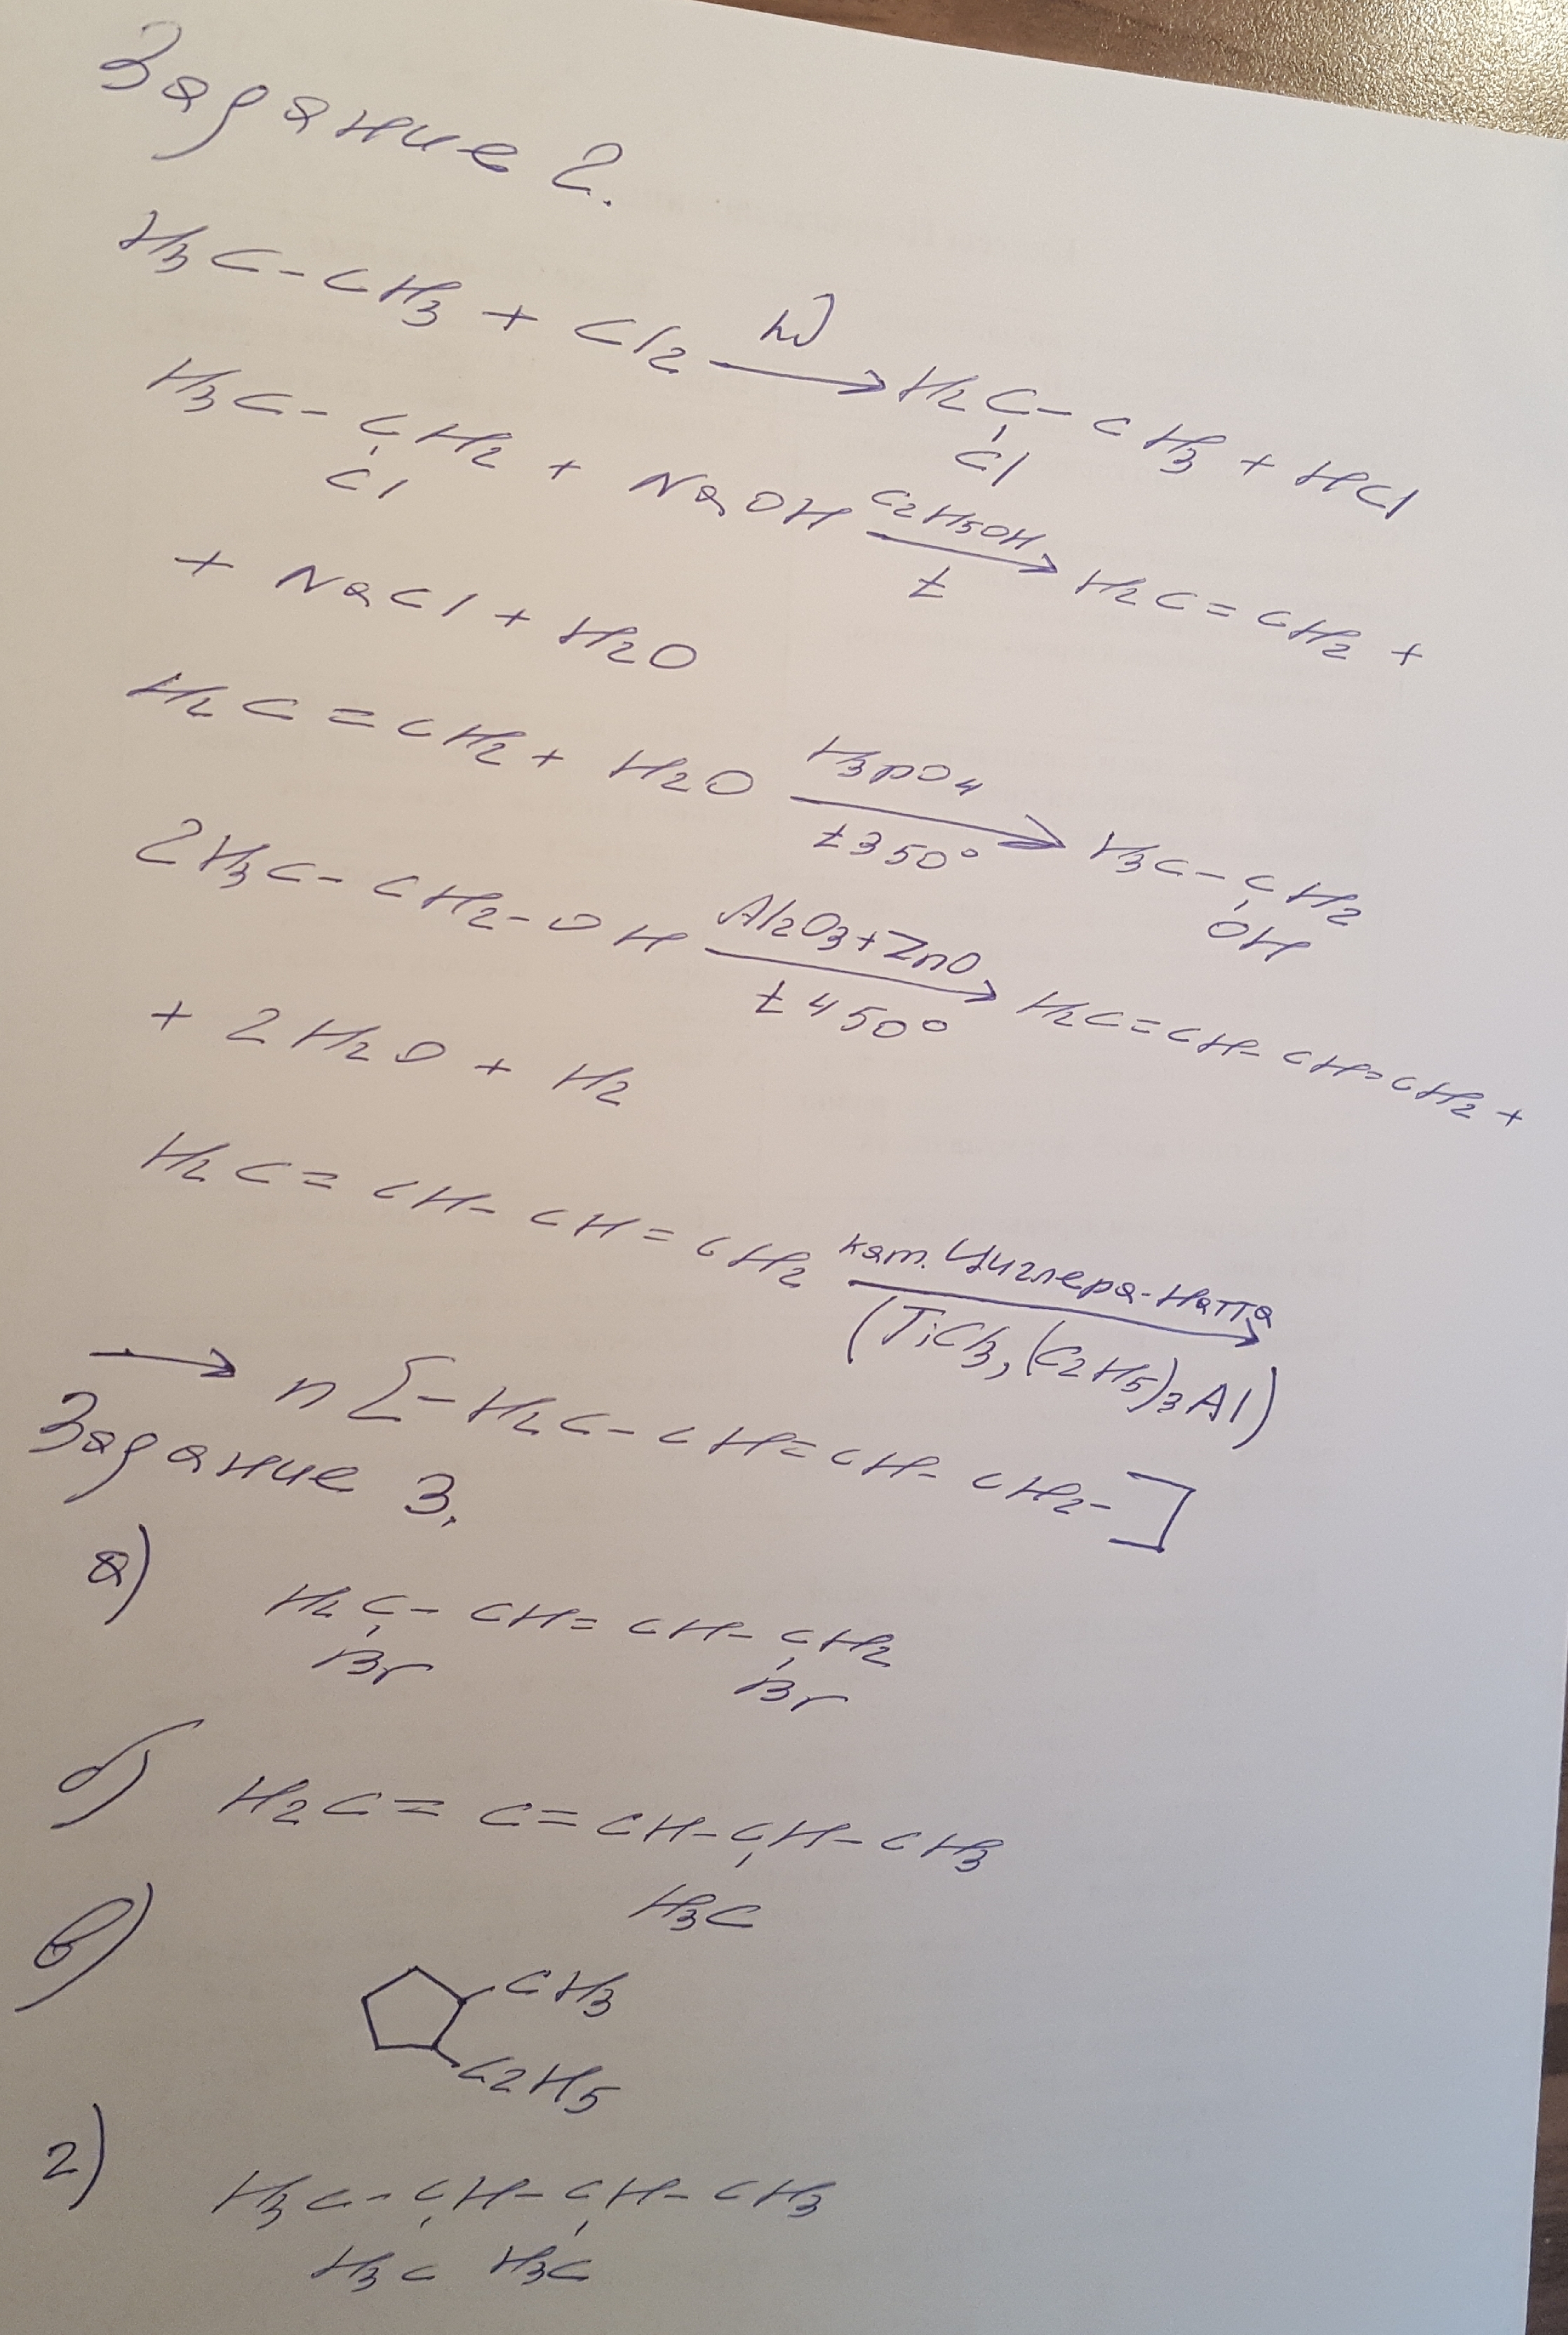 Задание 2.
H3C-CH3 + Cl2 hν → H2C-CH3 + HCl
Cl
H3C-CH2 + NaOH C2H5OH → H2C=CH2 +
Cl t
+ NaCl + H2O
H2C=CH2 + H2O H3PO4 → H3C-CH2
t350° OH
2H3C-CH2-OH Al2O3+ZnO → H2C=CH-CH=CH2 +
t450°
+ 2H2O + H2
H2C=CH-CH=CH2 кат. Циглера-Натта →
(TiCl3, (C2H5)3Al)
→ n[-H2C-CH=CH-CH2-]
Задание 3.
а) H2C-CH=CH-CH2
Br Br
б) H2C=C=CH-CH-CH3
H3C
в) CH3
C2H5
г) H3C-CH-CH-CH3
H3C H3C